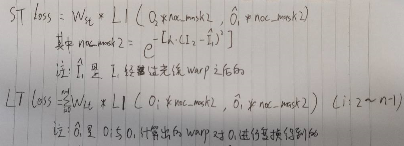 ST Loss = Wst * L1 ( O₂ * noc_mask2 , Ô₁ * noc_mask2 )
其中 noc_mask2 = e^{-[α·(I₂ - Î₁)²]}
注: Î₁ 是 I₁ 经过光流 warp 之后的
LT Loss = Σ Wlt * L1 ( Oᵢ * noc_mask2 , Ô₁ * noc_mask2 ) ( i: 2 ~ n-1 )
注: Ô₁ 是 Oᵢ 与 O₁ 计算出的 warp 对 O₁ 进行变换得到的